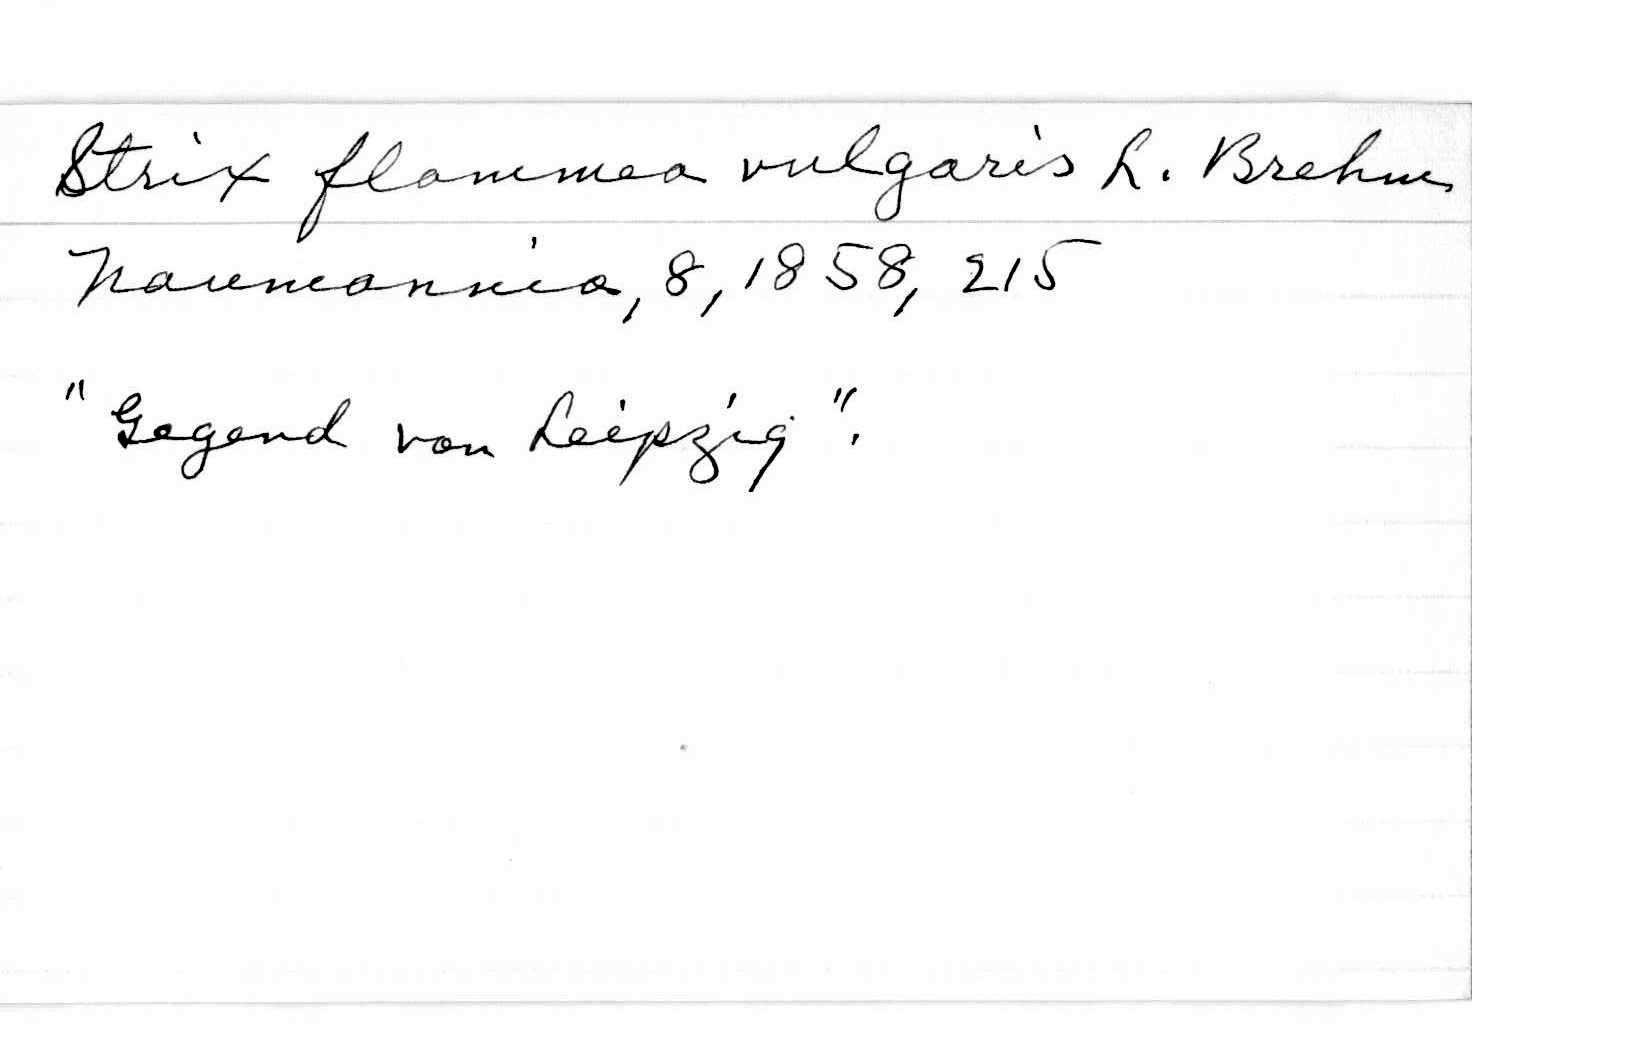 Strix flammea vulgaris L. Brehm
Naumannia, 8, 1858, 215
"Gegend von Leipzig".